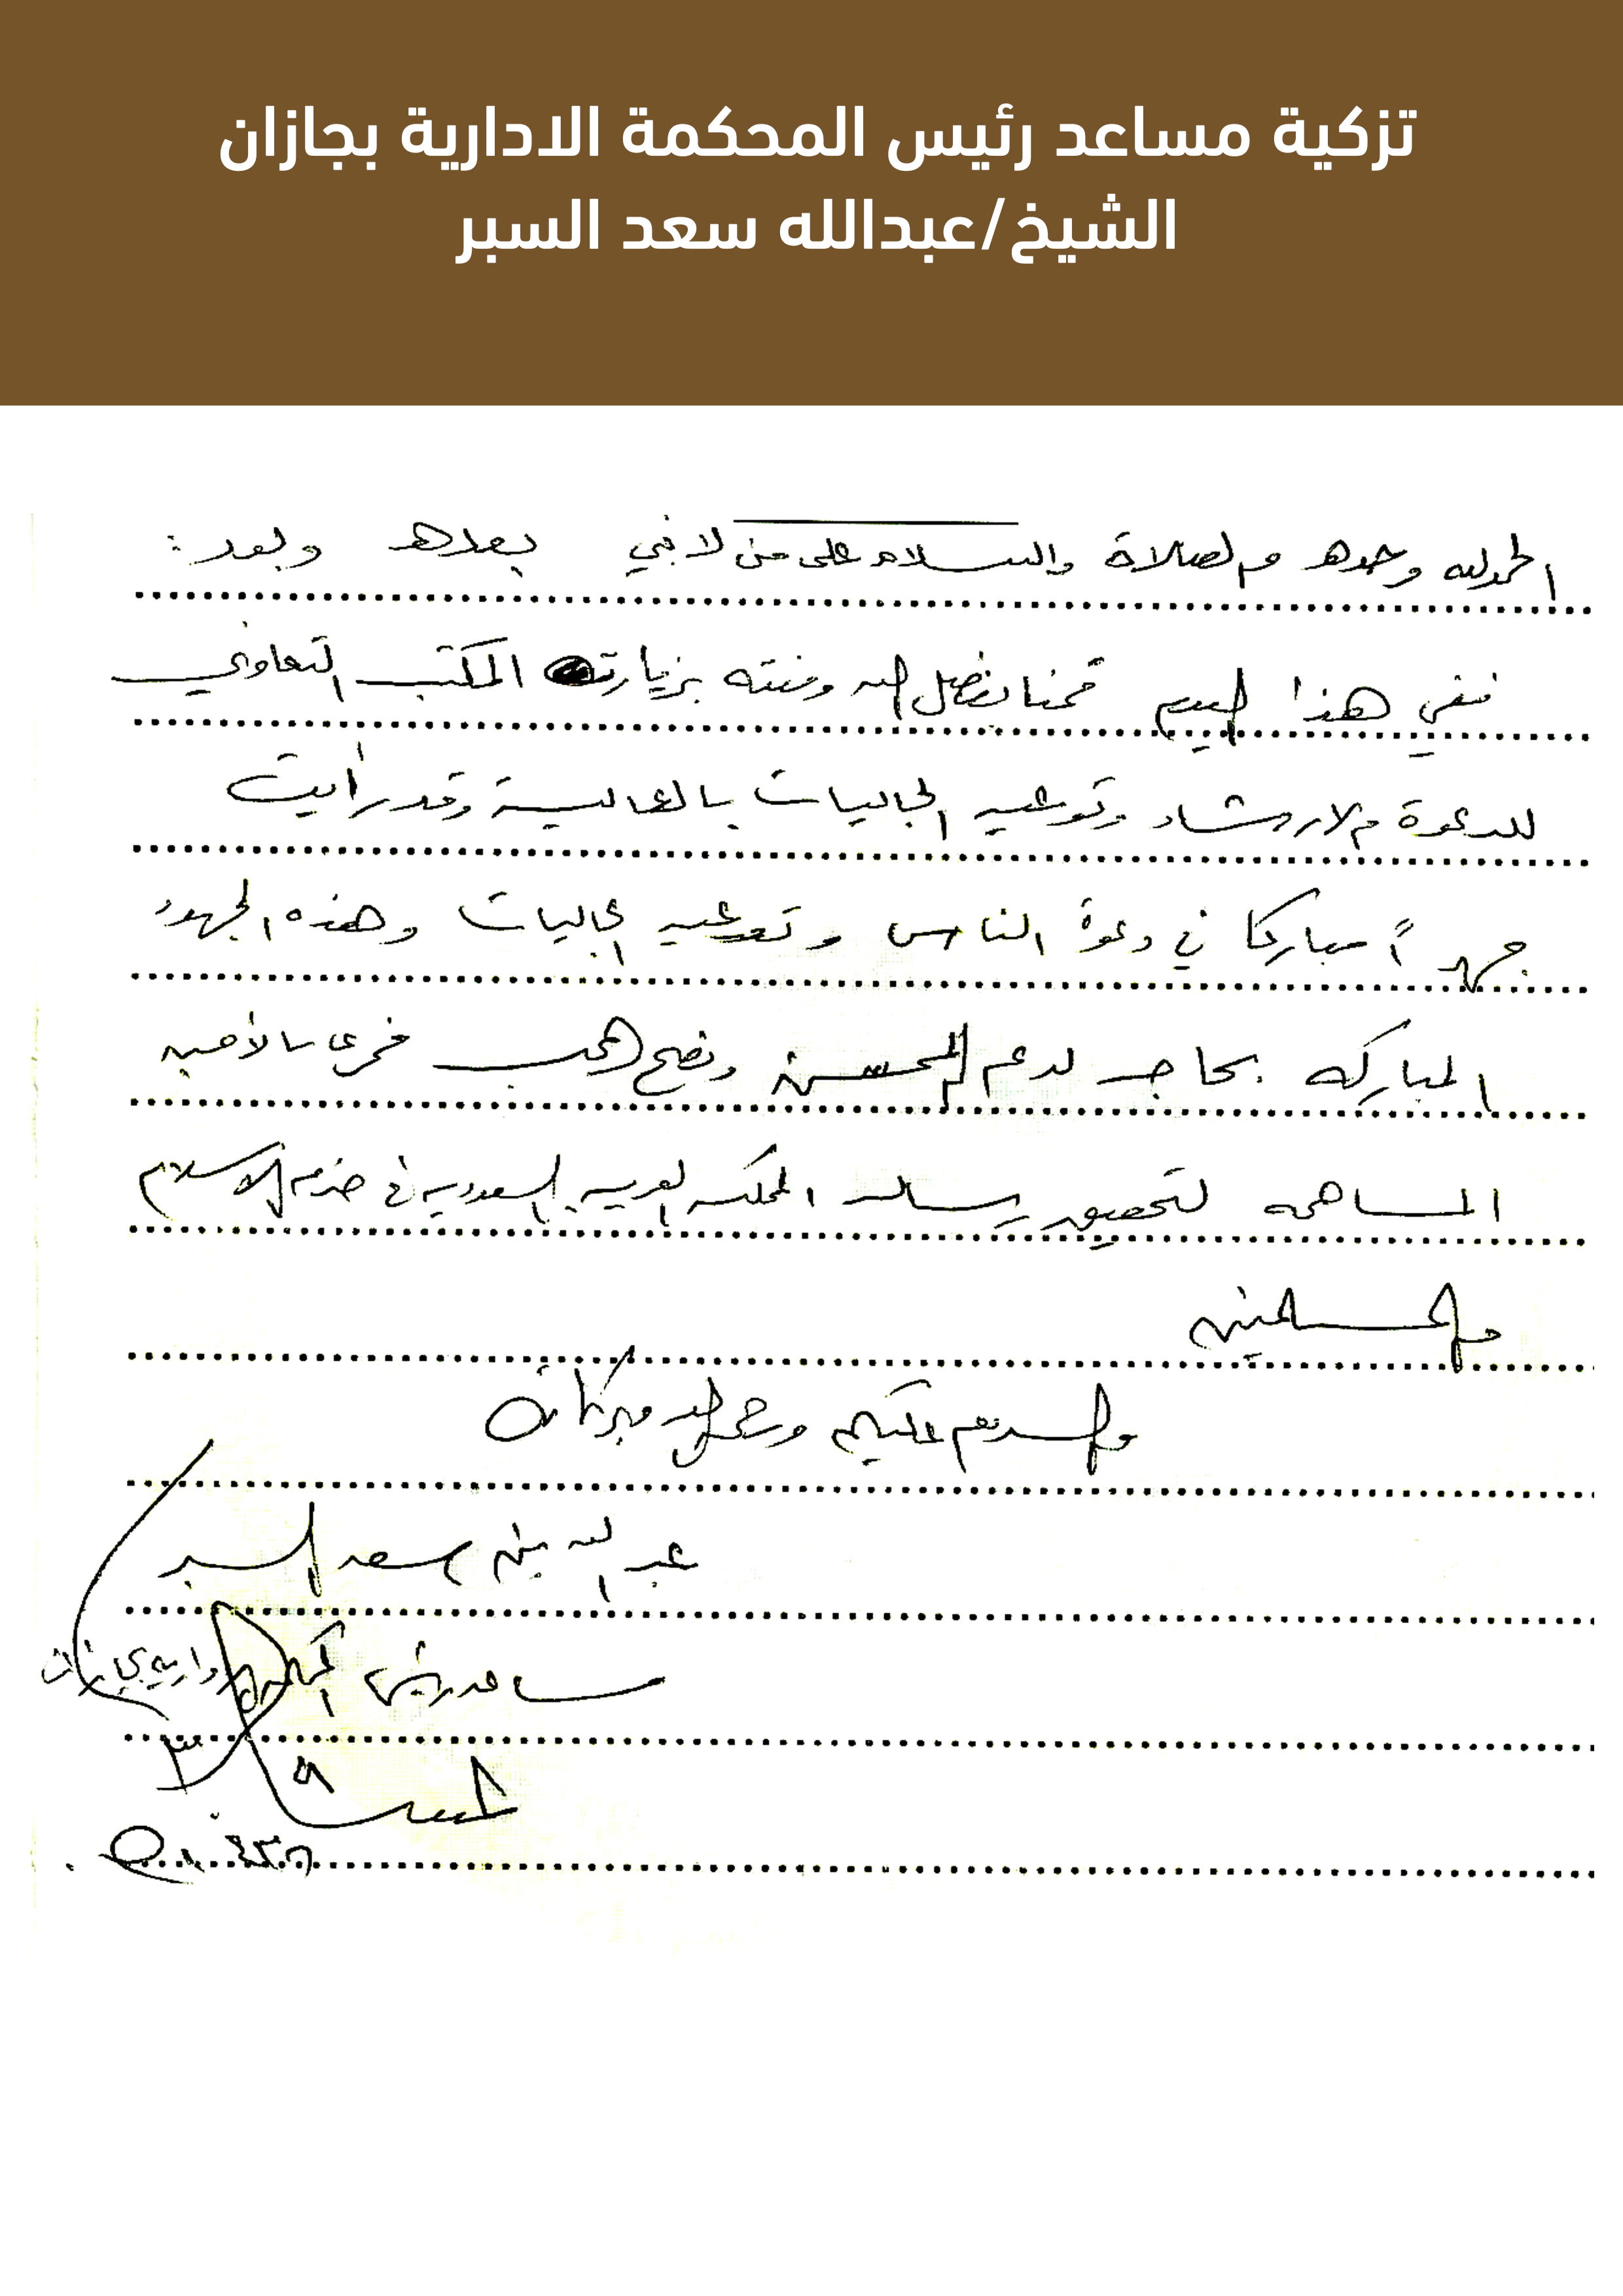 تزكية مساعد رئيس المحكمة الادارية بجازان
الشيخ/عبدالله سعد السبر
الحمد لله وحده والصلاة والسلام على من لا نبي بعده وبعد :
ففي هذا اليوم قمنا بفضل الله ومنته بزيارة المكتب التعاوني
للدعوة والارشاد وتوعية الجاليات بالعالية وقد رأيت
جهداً مباركا في دعوة الناس وتوعية الجاليات وهذه الجهود
المباركه بحاجه لدعم المحسن
المساهمه لتحقيق رساله المملكه العربيه السعوديه في خدمه الاسلام
والمسلمين
والسلام عليكم ورحمه الله وبركاته
عبدالله بن سعد السبر
مساعد رئيس المحكمه الاداريه بجازان